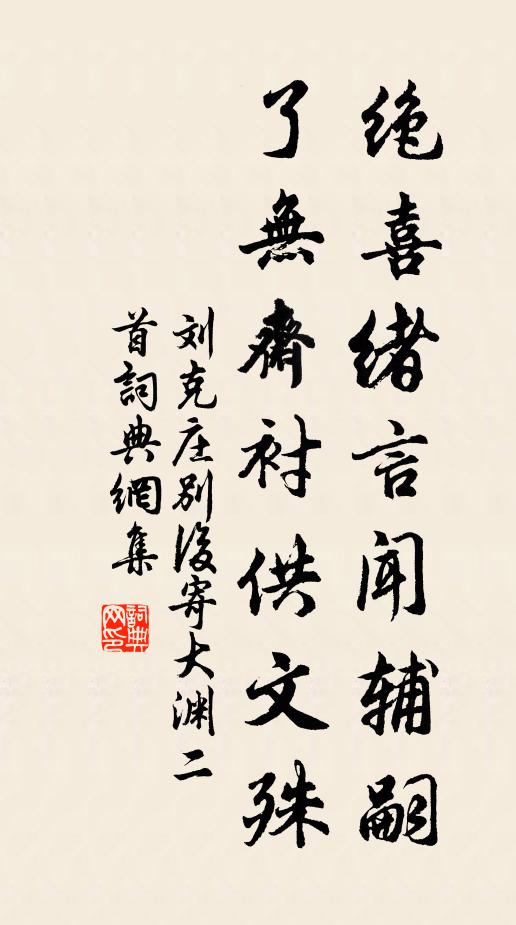 绝喜绪言闻辅嗣
了無齋衬供文殊
刘克庄别後寄大渊二
首詞典網集
詞典网印